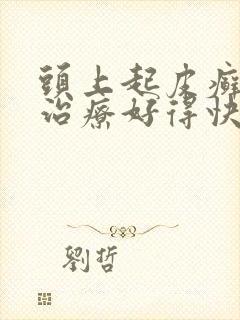 頭上起皮癬
治療好得快
劉哲